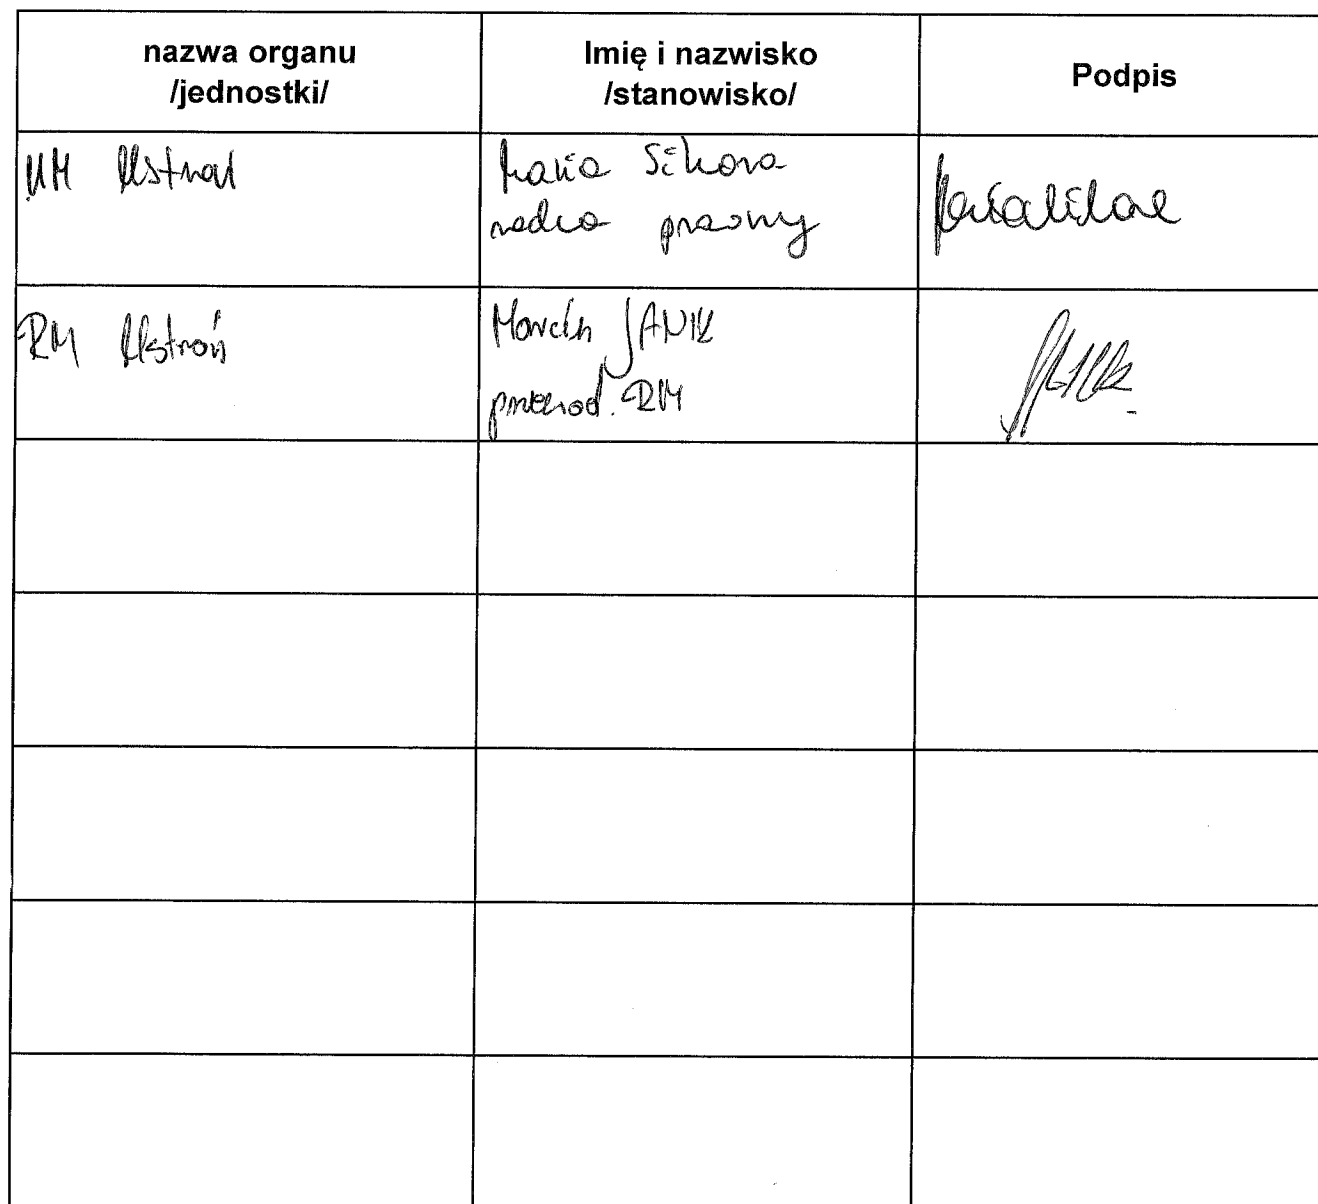 nazwa organu
/jednostki/
Imię i nazwisko
/stanowisko/
Podpis
UM Ustroń
Maria Sikora
radca prawny
RM Ustroń
Marcin JANIK
przewod. RM